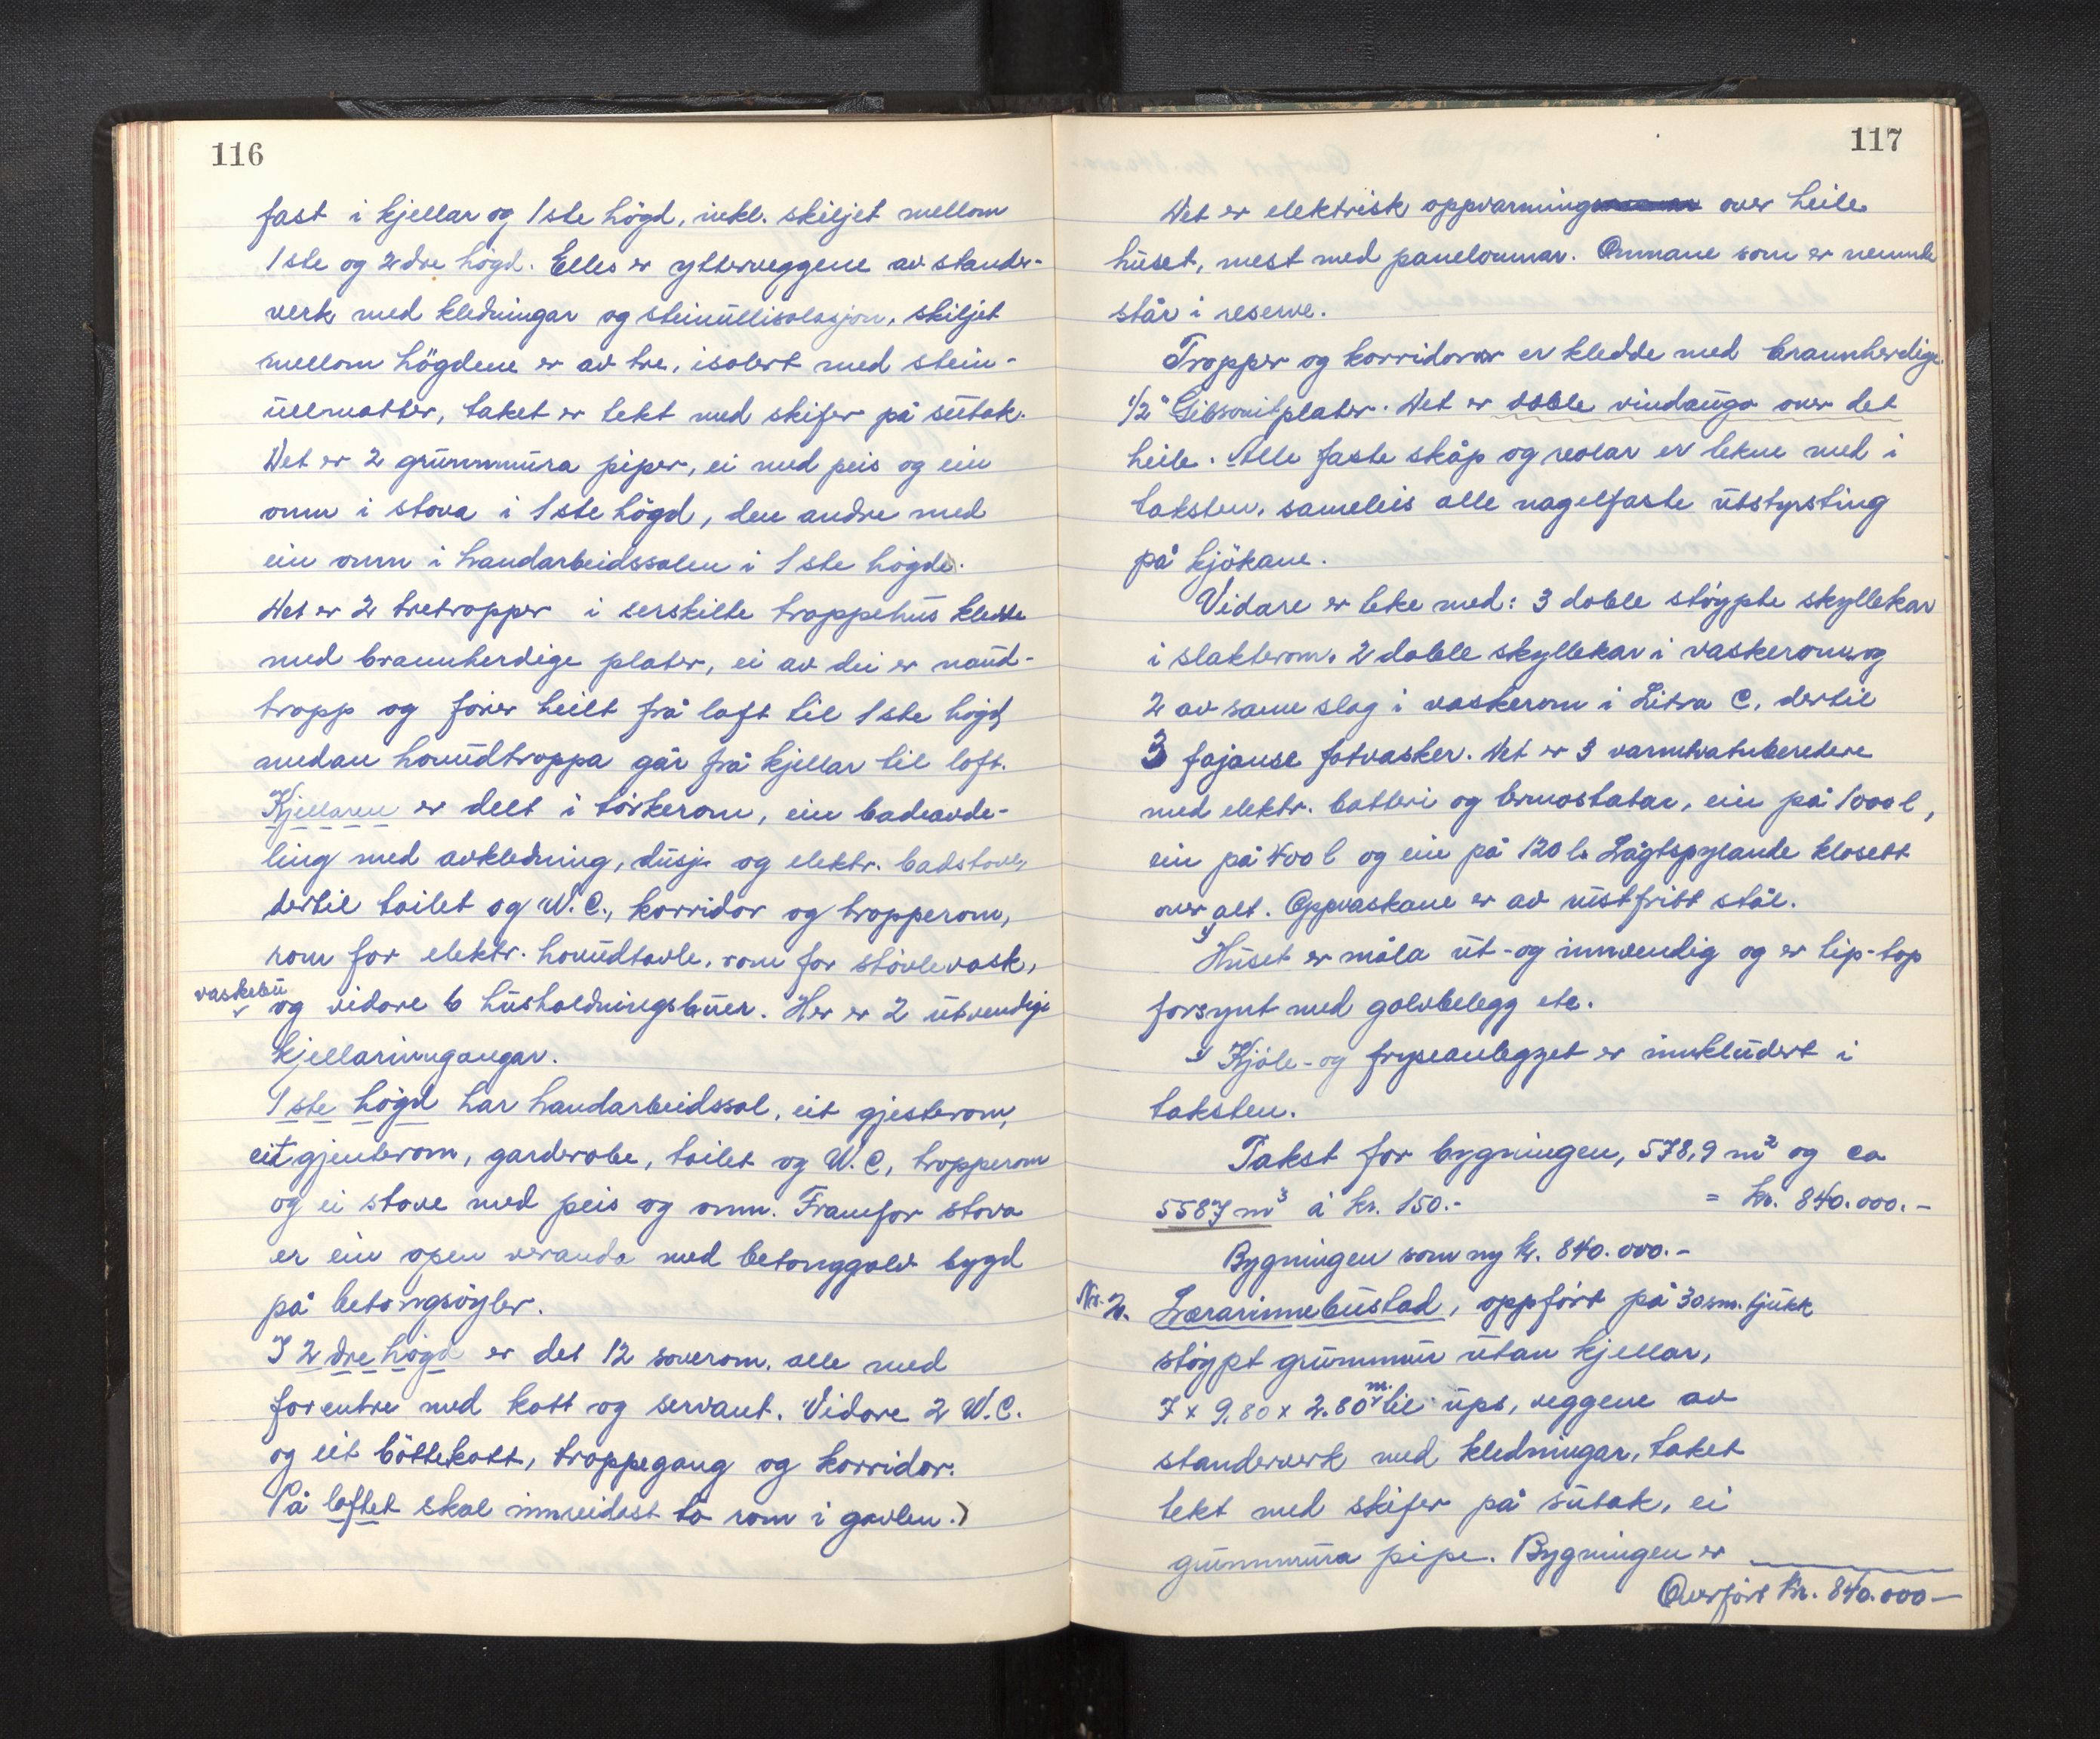 116
fast i kjellar og 1ste högd, inkl. skiljet mellom
1ste og 2dre högd. Elles er ytterveggene av stander-
verk med kledningar og steinullisolasjon, skiljet
mellom högdene er av tre, isolert med stein-
ullmatter, taket er tekt med skifer på sutak.
Det er 2 grunnmura piper, ei med peis og ein
omn i stova i 1ste högd, den andre med
ein omn i handarbeidssalen i 1ste högde.
Det er 2 tretropper i serskilte troppehus kledde
med brannherdige plater, ei av dei er naud-
tropp og förer heilt frå loft til 1ste högd
medan hovudtroppa går frå kjellar til loft.
Kjellaren er delt i törkerom, ein badeavde-
ling med avkledning, dusj og elektr. badstove,
dertil toilet og W.C., korridor og tropperom,
rom for elektr. hovudtavle, rom for stövlevask,
vaskebu
og vidare 6 husholdningsbuer. Her er 2 utvendige
kjellarinngangar.
1ste högd har handarbeidssal, eit gjesterom,
eit gjenterom, garderobe, toilet og W.C, tropperom
og ei stove med peis og omn. Framfor stova
er ein open veranda med betonggolv bygd
på betongsöyler.
I 2dre högd er det 12 soverom, alle med
forentre med kott og servant. Vidare 2 W.C.
og eit böttekott, troppegang og korridor.
På loftet skal innreidast to rom i gavlen.)
117
Det er elektrisk oppvarming over heile
huset, mest med panelomnar. Omnane som er nemnde
står i reserve.
Tropper og korridorar er kledde med brannherdige
1/2" Gibsonitplater. Det er doble vindaugo over det
heile. Alle faste skåp og reolar er tekne med i
taksten, sameleis alle nagelfaste utstyrsting
på kjökane.
Vidare er teke med: 3 doble stöypte skyllekar
i slakterom, 2 doble skyllekar i vaskerom og
2 av same slag i vaskerom i Litra C, dertil
3 fajanse fotvasker. Det er 3 varmtvatnberedere
med elektr. batteri og termostatar, ein på 1000 l,
ein på 400 l og ein på 120 l. Lågtspylande klosett
over alt. Oppvaskane er av rustfritt stål.
Huset er måla ut- og innvendig og er tip-top
forsynt med golvbelegg etc.
Kjöle- og fryseanlegget er innkludert i
taksten.
Takst for bygningen, 578,9 m² og ca
5587 m³ á kr. 150.- = kr. 840.000.-
Bygningen som ny kr. 840.000.-
Nr. 2. Lærarinnebustad, oppfört på 30 sm. tjukk
stöypt grunnmur utan kjellar,
7 x 9.80 x 2.80 m. til ups, veggene av
standerverk med kledningar, taket
tekt med skifer på sutak, ei
grunnmura pipe. Bygningen er
Overfört kr. 840.000-